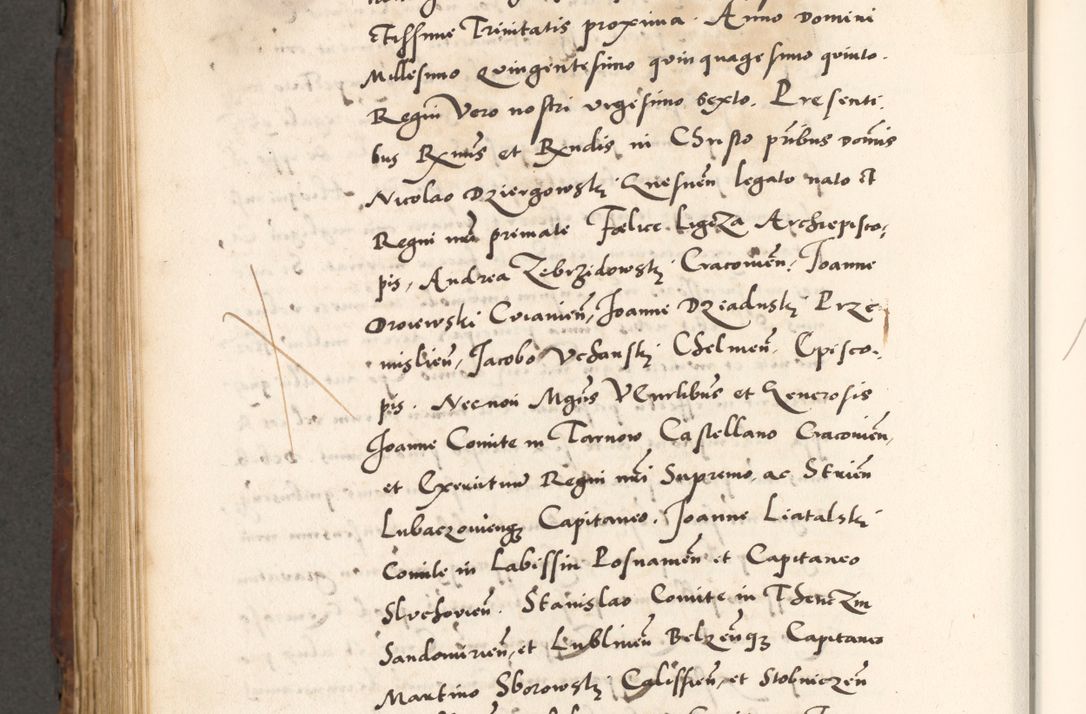 ctissime Trinitatis proxima. Anno domini
Millesimo Quingentesimo quinquagesimo quinto.
Regni Vero nostri vigesimo Sexto. Presenti
bus Rxmis et Rxndis in Christo pribus domis
Nicolao Dziergowski Gnesnen legato nato et
Regni nri primate Fœlice Ligeza Archiepisco,
pis, Andrea Zebrzidowski Cracovien, Joanne
Droiewski Cuiavien, Joanne Dzeaduski Prze
mislien, Jacobo Uchanski Chelmen. Episco,
pis. Necnon Mgcis Vltribus et Generosis
Joanne Comite in Tarnow Castellano Cracovien,
et Exercituum Regni nri Supremo, ac Strien
Lubaczovienque Capitaneo. Joanne Liatalski
Comite in Labissin Posnamen et Capitaneo
Slvchovien. Stanislao Comite in Thenczin
Sandomirien, et Lublinen Belzenque Capitaneo
Martino Sborowski Calissien, et Stobniczen